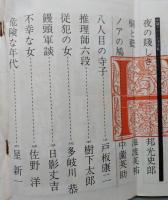 夜の賤しさ 邦光史郎
髪と藍 渡英祐
ノアの鳩 中薗英助
八人目の寺子 戸板康二
推理師六段 樹下太郎
従犯の女 多岐川恭
饅頭軍談 日影丈吉
不幸な女 佐野洋
危険な年代 星新一